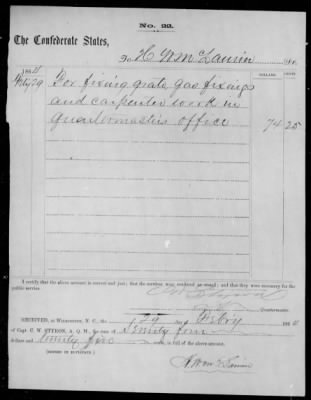 No. 22.
The Confederate States,
To H Wm McLaurin Dr.
1864 DOLLARS. CENTS.
Feby 29 For fixing grate gas fixings
and carpenter work in
quartermasters office 74 25
I certify that the above account is correct and just; that the services were rendered as stated; and that they were necessary for the
public service.
Quartermaster.
RECEIVED, at WILMINGTON, N. C., the 29 day Febry 1864
of Capt. C. W. STYRON, A. Q. M., the sum of Seventy four
dollars and twenty five cents, in full of the above account.
(SIGNED IN DUPLICATE.)